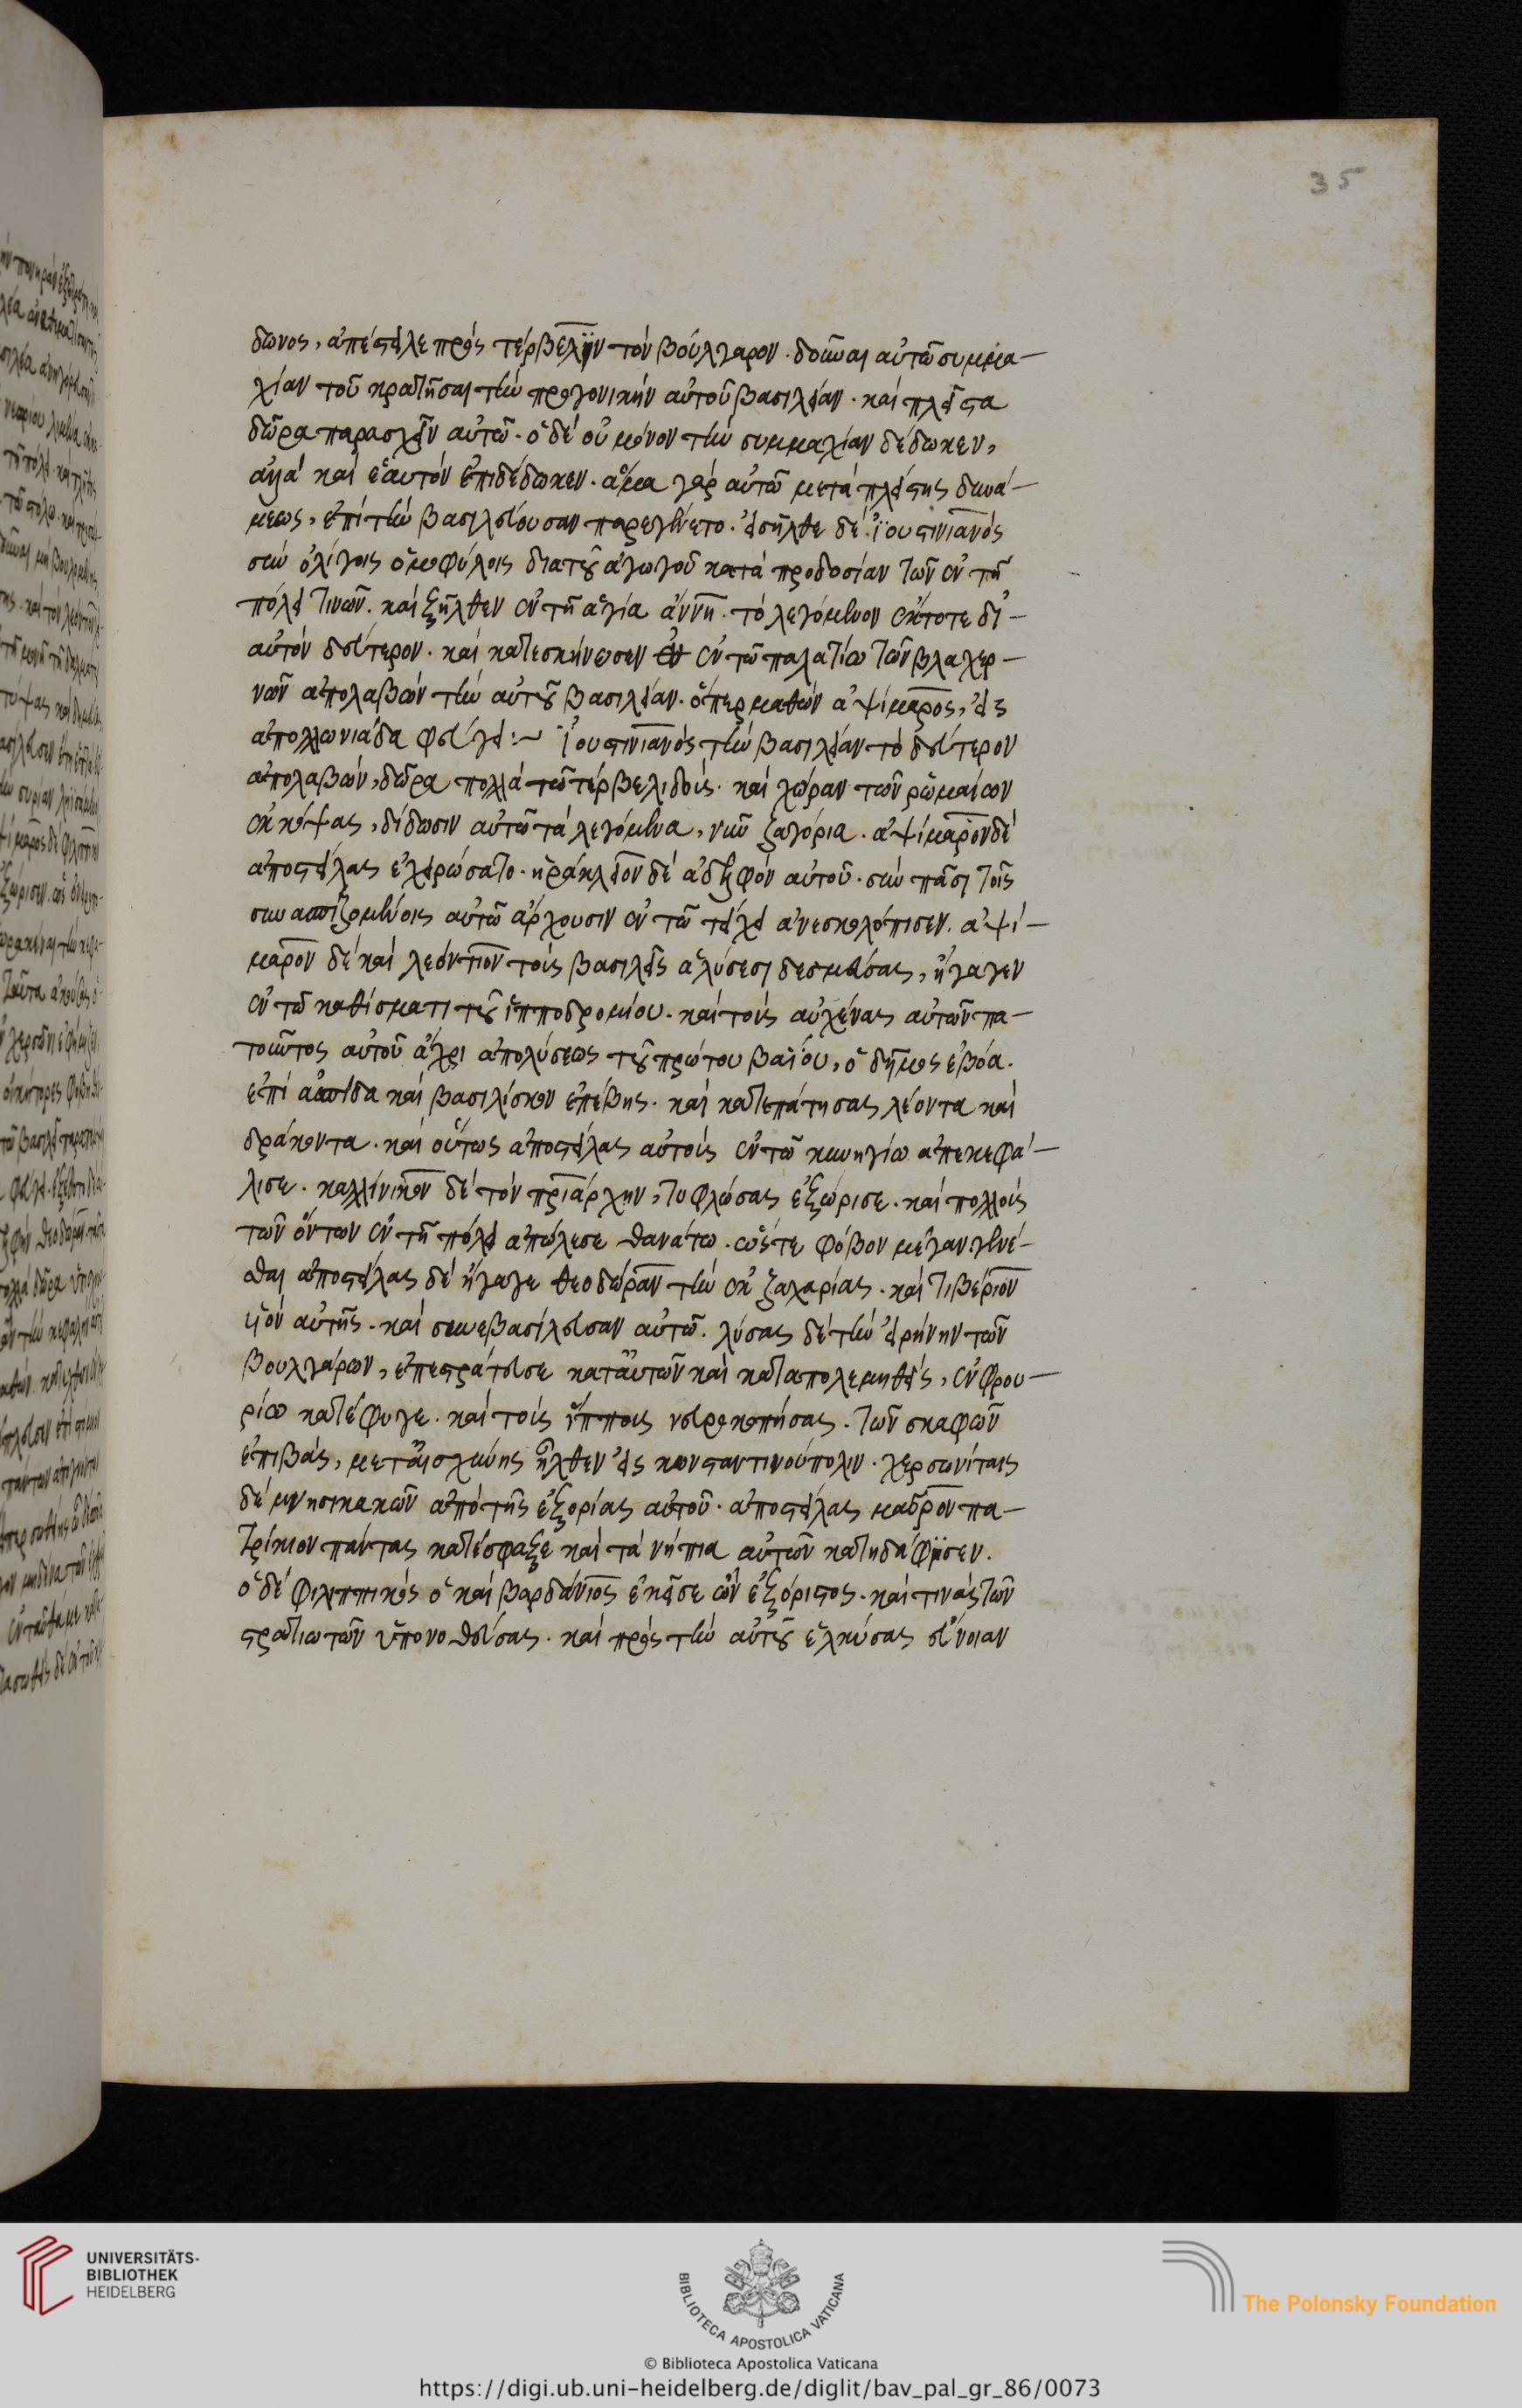 35
δωνος, ἀπέστειλε πρὸς τέρβελιν τὸν βούλγαρον. δοῦναι αὐτῶ συμμα-
χίαν τοῦ κρατῆσαι τὴν προγονικὴν αὐτοῦ βασιλείαν. καὶ πλεῖστα
δῶρα παρασχεῖν αὐτῶ. ὁ δὲ οὐ μόνον τὴν συμμαχίαν δέδωκεν,
ἀλλὰ καὶ ἑαυτὸν ἐπιδέδωκεν. ἅμα γὰρ αὐτῶ μετὰ πλείστης δυνά-
μεως, ἐπὶ τὴν βασιλεύουσαν παρεγένετο. εἰσῆλθε δὲ ἰουστινιανὸς
σὺν ὀλίγοις ὁμοφύλοις διὰ τοῦ ἀγωγοῦ κατὰ προδοσίαν τῶν ἐν τῆ
πόλει τινῶν. καὶ ἐξῆλθεν ἐν τῆ ἁγία ἄννη. τὸ λεγόμενον ἔκτοτε δι'
αὐτὸν δεύτερον. καὶ κατεσκήνωσεν ἐν ἐν τῶ παλατίω τῶν βλαχερ-
νῶν ἀπολαβὼν τὴν αὐτοῦ βασιλείαν. ὅπερ μαθὼν ἀψίμαρος, εἰς
ἀπολλωνιάδα φεύγει:~ Ἰουστινιανὸς τὴν βασιλείαν τὸ δεύτερον
ἀπολαβὼν, δῶρα πολλὰ τῶ τέρβελι δοὺς. καὶ χώραν τῶν ῥωμαίων
ἐκκόψας, δίδωσιν αὐτῶ τὰ λεγόμενα, νῦν ζαγόρια. ἀψίμαρον δὲ
ἀποστείλας ἐχειρώσατο. ἡράκλειον δὲ ἀδελφὸν αὐτοῦ. σὺν πᾶσι τοῖς
συνασπιζομένοις αὐτῶ ἄρχουσιν ἐν τῶ τείχει ἀνεσκολόπισεν. ἀψί-
μαρον δὲ καὶ λεόντιον τοὺς βασιλεῖς ἁλύσεσι δεσμεύσας, ἤγαγεν
ἐν τῶ καθίσματι τοῦ ἱπποδρομίου. καὶ τοὺς αὐχένας αὐτῶν πα-
τοῦντος αὐτοῦ ἄχρι ἀπολύσεως τοῦ πρώτου βαΐου, ὁ δῆμος ἐβόα.
ἐπὶ ἀσπίδα καὶ βασιλίσκον ἐπέβης. καὶ κατεπάτησας λέοντα καὶ
δράκοντα. καὶ οὕτως ἀποστείλας αὐτοὺς ἐν τῶ κυνηγίω ἀπεκεφά-
λισε. καλλίνικον δὲ τὸν πριάρχην, τυφλώσας ἐξώρισε. καὶ πολλοὺς
τῶν ὄντων ἐν τῆ πόλει ἀπώλεσε θανάτω. ὥστε φόβον μέγαν γενέ-
σθαι ἀποστείλας δὲ ἤγαγε θεοδώραν τὴν ἐκ ζαχαρίας. καὶ τιβέριον
υἱὸν αὐτῆς. καὶ συνεβασίλευσαν αὐτῶ. λύσας δὲ τὴν εἰρήνην τῶν
βουλγάρων, ἐπεστράτευσε κατ' αὐτῶν καὶ καταπολεμηθεὶς, ἐν φρου-
ρίω κατέφυγε. καὶ τοὺς ἵππους νευροκοπήσας. τῶν σκαφῶν
ἐπιβὰς, μετ' αἰσχύνης ἦλθεν εἰς κωνσταντινούπολιν. χερσωνίταις
δὲ μνησικακῶν ἀπὸ τῆς ἐξορίας αὐτοῦ. ἀποστείλας μαῦρον πα-
τρίκιον πάντας κατέσφαξε καὶ τὰ νήπια αὐτῶν κατηδάφησεν.
ὁ δὲ φιλιππικὸς ὁ καὶ βαρδάνιος ἐκεῖσε ὢν ἐξόριστος. καὶ τινὰς τῶν
στρατιωτῶν ὑπονοθεύσας. καὶ πρὸς τὴν αὐτοῦ ἑλκύσας εὔνοιαν
UNIVERSITÄTS-
BIBLIOTHEK
HEIDELBERG
BIBLIOTECA APOSTOLICA VATICANA
The Polonsky Foundation
© Biblioteca Apostolica Vaticana
https://digi.ub.uni-heidelberg.de/diglit/bav_pal_gr_86/0073